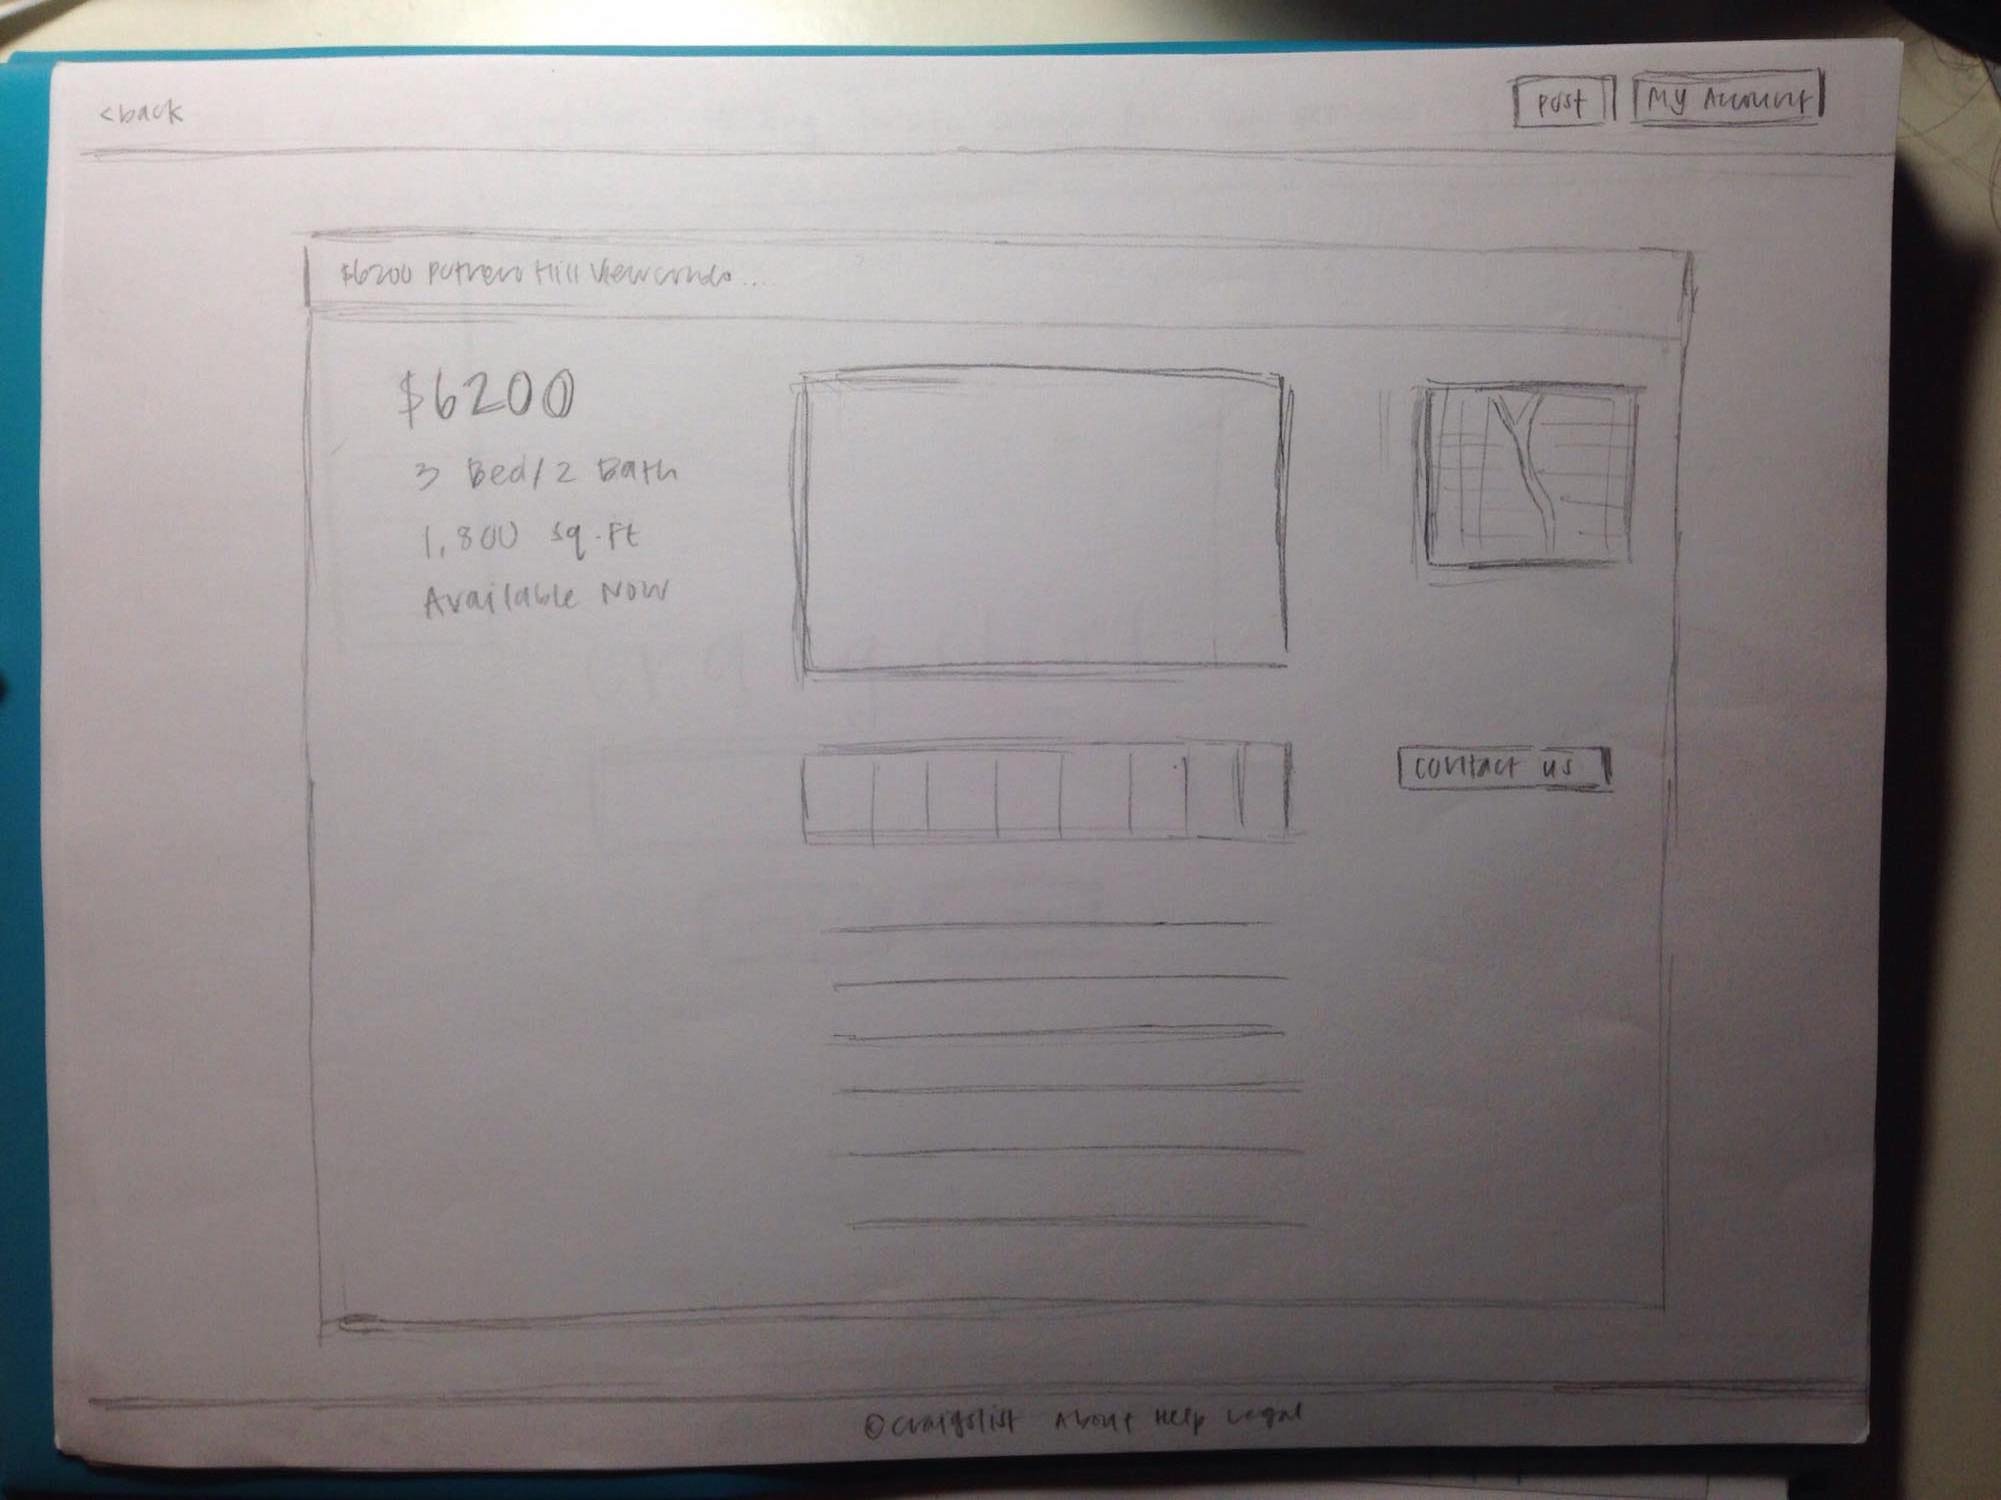 <back
Post
My Account
$6200 Potrero Hill View condo...
$6200
3 Bed/2 Bath
1,800 sq.Ft
Available Now
contact us
©craigslist About Help Legal